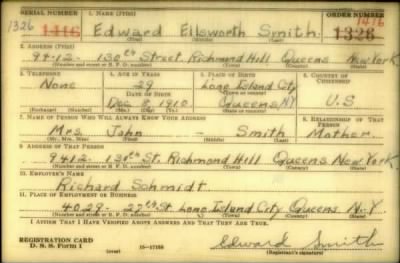 SERIAL NUMBER 1. NAME (Print) ORDER NUMBER
1326 1416 Edward Ellsworth Smith 1416 1326
(First) (Middle) (Last)
2. ADDRESS (Print)
94-12- 130th Street. Richmond Hill Queens New York
(Number and street or R. F. D. number) (Town) (County) (State)
3. TELEPHONE 4. AGE IN YEARS 5. PLACE OF BIRTH 6. COUNTRY OF CITIZENSHIP
None 29 Long Island City
DATE OF BIRTH (Town or county)
Dec 8, 1910 Queens, N.Y U.S
(Exchange) (Number) (Mo.) (Day) (Yr.) (State or country)
7. NAME OF PERSON WHO WILL ALWAYS KNOW YOUR ADDRESS 8. RELATIONSHIP OF THAT PERSON
Mrs. John - Smith Mother.
(Mr., Mrs., Miss) (First) (Middle) (Last)
9. ADDRESS OF THAT PERSON
9412- 130th St. Richmond Hill Queens New York
(Number and street or R. F. D. number) (Town) (County) (State)
10. EMPLOYER'S NAME
Richard Schmidt.
11. PLACE OF EMPLOYMENT OR BUSINESS
4029- 27th St. Long Island City Queens N.Y.
(Number and street or R. F. D. number) (Town) (County) (State)
I AFFIRM THAT I HAVE VERIFIED ABOVE ANSWERS AND THAT THEY ARE TRUE.
REGISTRATION CARD Edward Smith
D. S. S. Form 1 (over) 16-17105 (Registrant's signature)